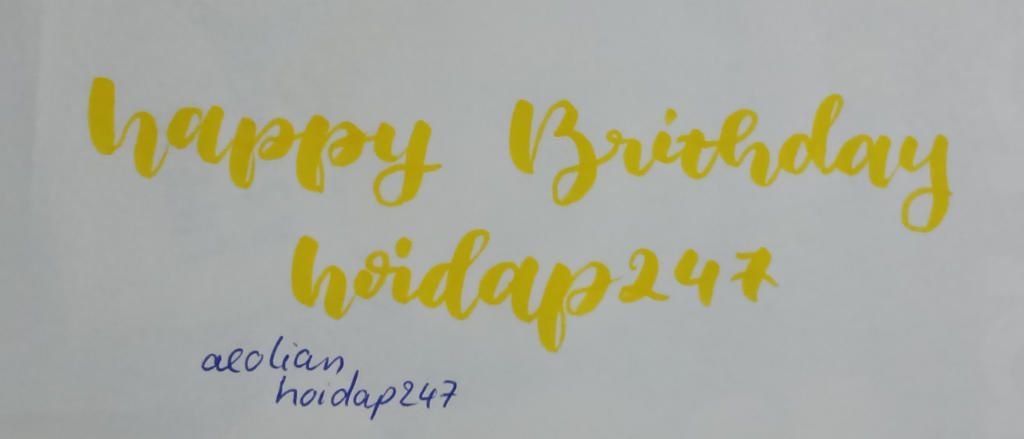 happy Brithday
hoidap247
aeolian
hoidap247